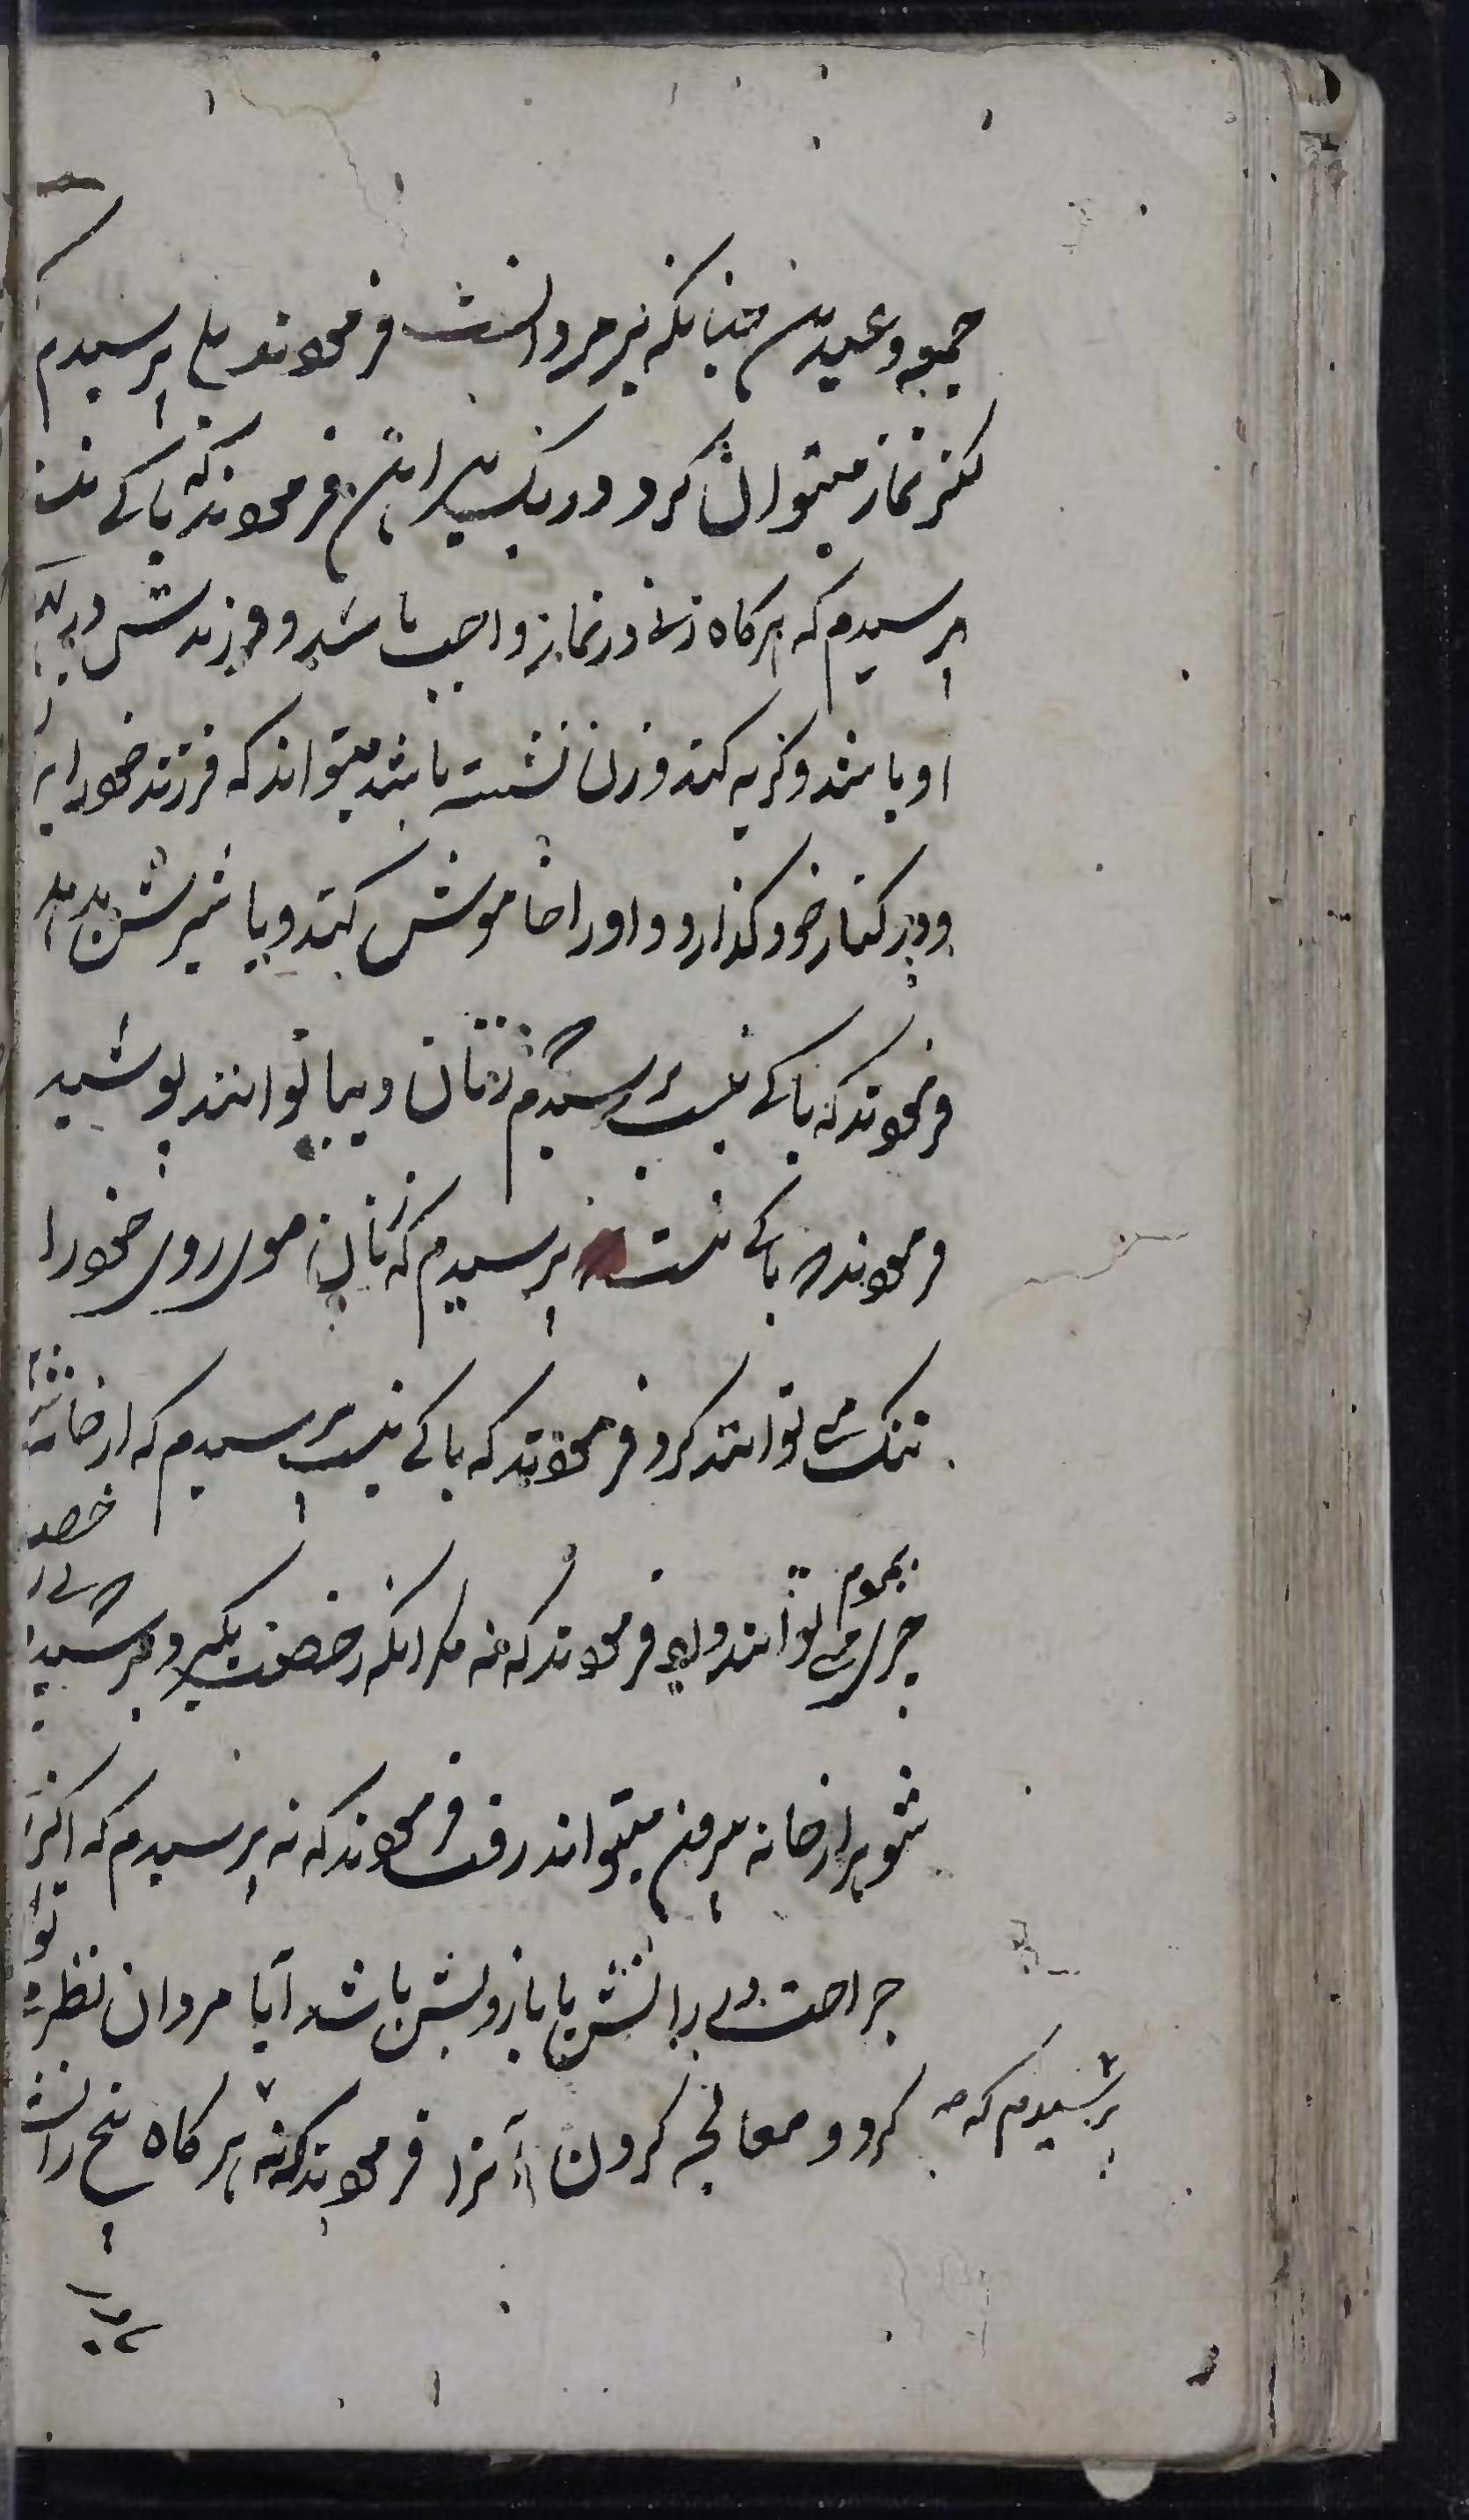 جمعه و عیدین چنانکه بر مردانست فرمودند بلی پرسیدم
کنز نماز میتوان کرد در یک پیراهن فرمودند که باکی نیست
پرسیدم که هرگاه زنی در نماز واجب باشد و فرزندش در پهلوی
او باشد و گریه کند و زن نشسته باشد میتواند که فرزند خود را بر
و در کنار خود گذارد و او را خاموش کند و یا شیرش بدهد
فرمودند که باکی نیست پرسیدم که زنان دیبا توانند پوشید
فرمودند که باکی نیست پرسیدم که زنان موی روی خود را
تنک می توانند کرد فرمودند که باکی نیست پرسیدم که از خانه شوهر
چیزی می توانند داد فرمودند که نه مگر آنکه رخصت بگیرد پرسیدم که بی رخصت
شوهر از خانه بیرون میتواند رفت فرمودند که نه پرسیدم که اگر
جراحت در رانش یا بازویش باشد آیا مردان نظر توانند
کرد و معالجه کردن آنرا فرمودند که نه هرگاه بیخ رانش
پرسیدم که